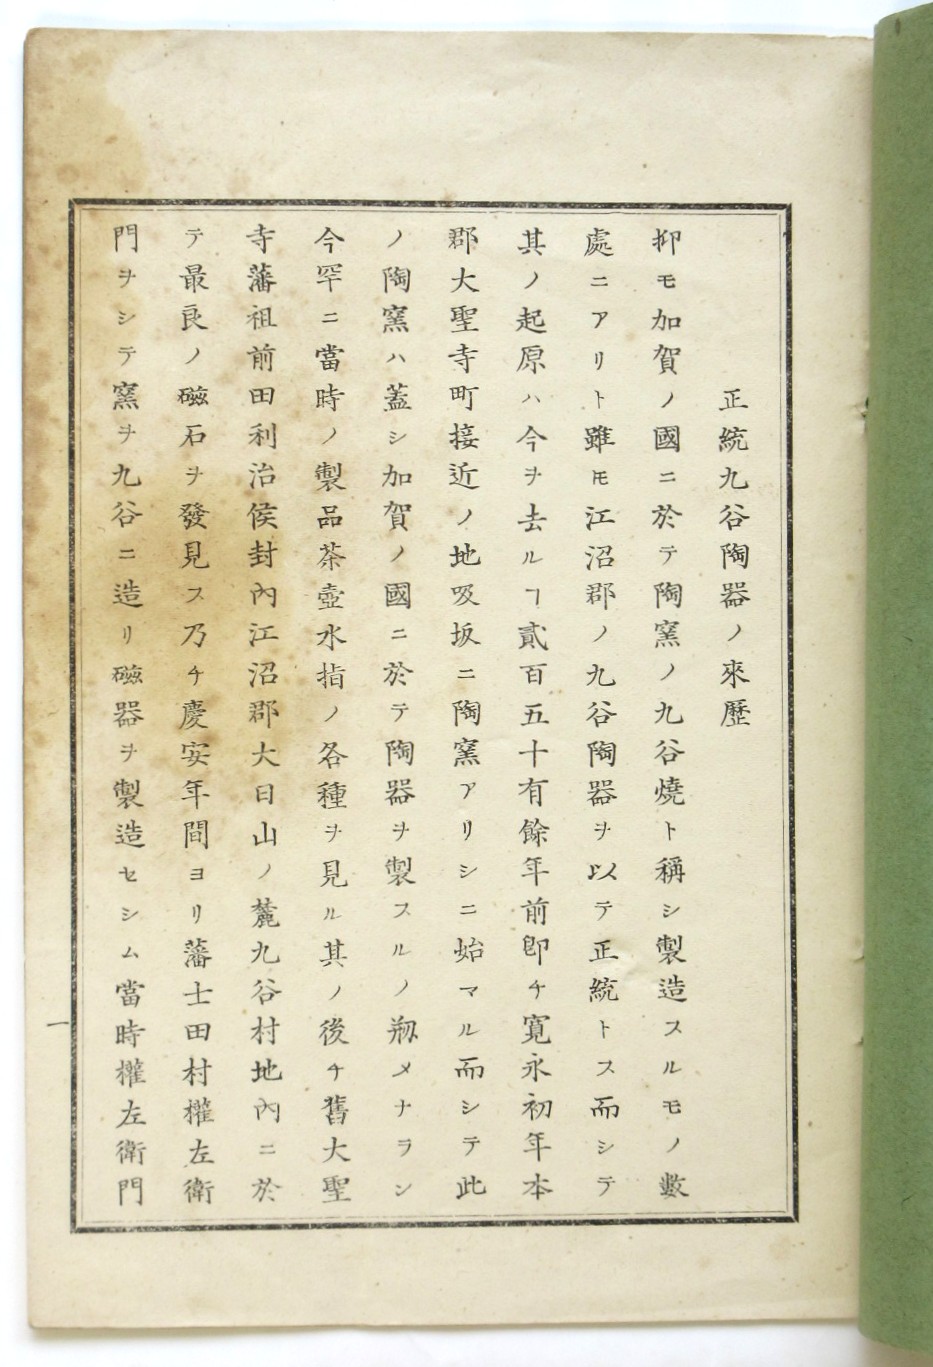 正統九谷陶器ノ來歷
抑モ加賀ノ國ニ於テ陶窯ノ九谷燒ト稱シ製造スルモノ數
處ニアリト雖𪜈江沼郡ノ九谷陶器ヲ以テ正統トス而シテ
其ノ起原ハ今ヲ去ルヿ貳百五十有餘年前卽チ寬永初年本
郡大聖寺町接近ノ地吸坂ニ陶窯アリシニ始マル而シテ此
ノ陶窯ハ蓋シ加賀ノ國ニ於テ陶器ヲ製スルノ刱メナラン
今罕ニ當時ノ製品茶壺水指ノ各種ヲ見ル其ノ後チ舊大聖
寺藩祖前田利治侯封內江沼郡大日山ノ麓九谷村地內ニ於
テ最良ノ磁石ヲ發見ス乃チ慶安年間ヨリ藩士田村權左衛
門ヲシテ窯ヲ九谷ニ造リ磁器ヲ製造セシム當時權左衛門
一